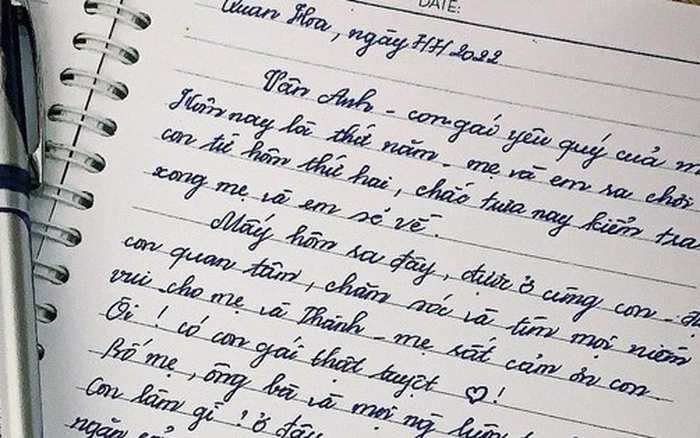 DATE:
Quan Hoa, ngày 7/7/2022
Vân Anh - con gái yêu quý của m
Hôm nay là thứ năm - mẹ và em ra chơi
con từ hôm thứ hai, chắc trưa nay kiểm tra
xong mẹ và em sẽ về.
Mấy hôm ra đây, được ở cùng con - đ
con quan tâm, chăm sóc và tìm mọi niềm
vui cho mẹ và Thành - mẹ rất cảm ơn con
Ôi! có con gái thật tuyệt ♡!
Bố mẹ, ông bà và mọi ng luôn
con làm gì? ở đâu
ngăn